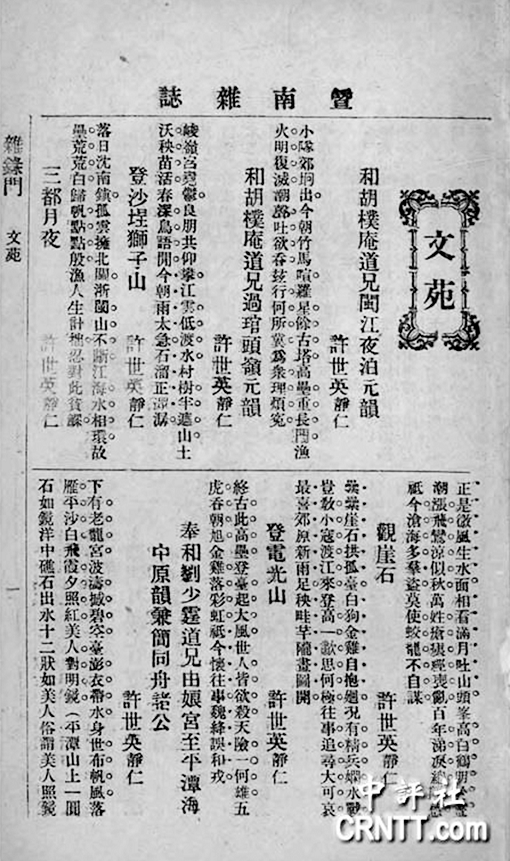 暨南雜誌
文苑
和胡樸庵道兄閩江夜泊元韻
許世英靜仁
小隊郊坰出今朝竹馬喧羅星餘古塔高壘重長門漁
火明復滅潮落吐欲吞玆行何所冀爲衆理煩寃
和胡樸庵道兄過琯頭嶺元韻
許世英靜仁
崚嶺宮鬱良朋共仰攀江雲低渡水村樹半遮山土
沃秧苗活春深鳥語閒今朝雨太急石溜正潺潺
登沙埕獅子山
許世英靜仁
落日沈南鎮孤雲擁北關浙閩山不斷江海水相環故
壘荒荒白歸帆點點殷漁人生計拙忍對此貧孱
三都月夜
許世英靜仁
正是微風生水面相看滿月吐山頭峯高白鶴明
潮漲飛鸞涼似秋萬姓瘡痍經喪亂百年涕淚
祗今滄海多羣盜莫使蛟龍不自謀
觀崖石
許世英靜仁
纍纍崖石拱孤臺白狗金雞自抱廻況有精兵嫺水戰
豈敎小寇渡江來登高一歗思何極往事追尋大可哀
最喜郊原新雨足秧畦芋隴畫圖開
登電光山
許世英靜仁
終古此高壘登臺起大風世人皆欲殺天險一何雄五
虎吞朝旭金雞落彩虹祗今懷往事魏絳誤和戎
奉和劉少霆道兄由娘宮至平潭海
中原韻兼簡同舟諸公
許世英靜仁
下有老龍宮波濤撼碧空臺澎衣帶水身世布帆風落
雁平沙白飛霞夕照紅美人對明鏡（平潭山上一圓
石如鏡洋中礁石出水十二狀如美人俗謂美人照鏡
雜錄門 文苑
一
中評社
CRNTT.com